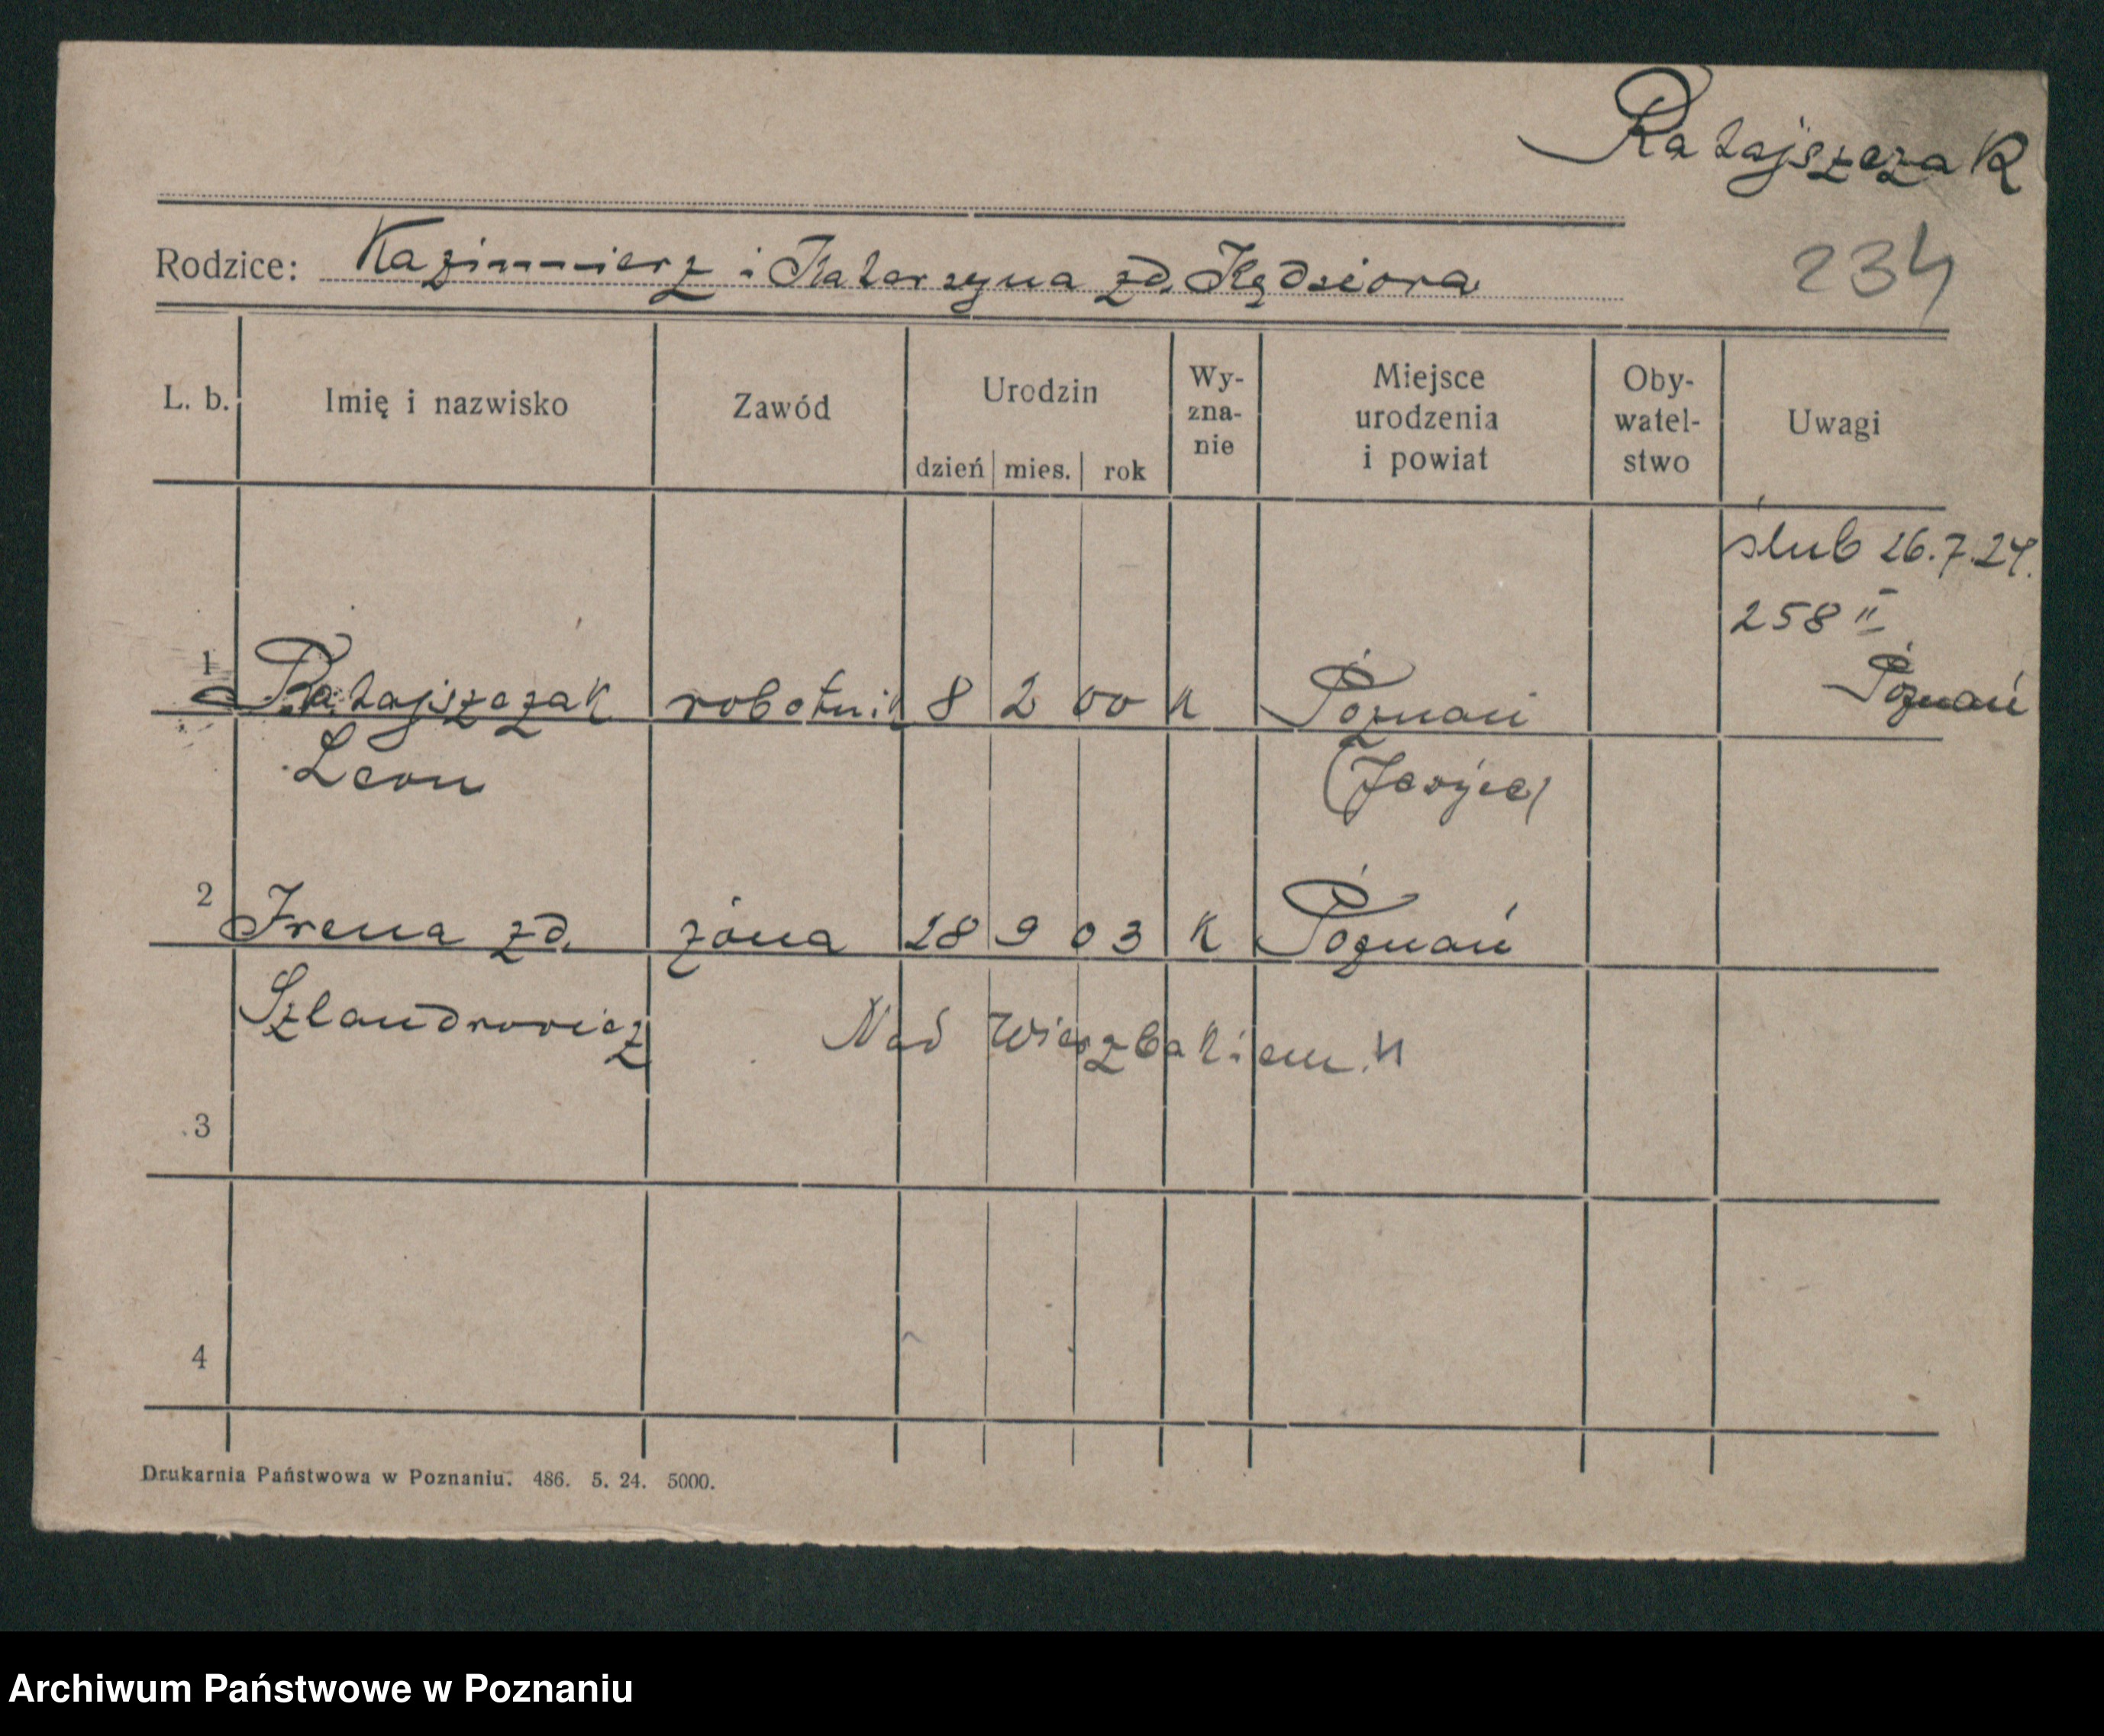 Ratajszczak
Rodzice: Kazimmierz i Katarzyna zd. Kędziora
234
L. b. Imię i nazwisko Zawód Urodzin dzień mies. rok Wy-zna-nie Miejsce urodzenia i powiat Oby-watel-stwo Uwagi
ślub 26.7.24.
258 II
Poznań
1 Ratajszczak robotnik 8 2 00 k Poznań
Leon (Jeżyce)
2 Irena zd. żona 28 9 03 k Poznań
Szlandrowicz Nad Wierzbakiem. 4
3
4
Drukarnia Państwowa w Poznaniu. 486. 5. 24. 5000.
Archiwum Państwowe w Poznaniu